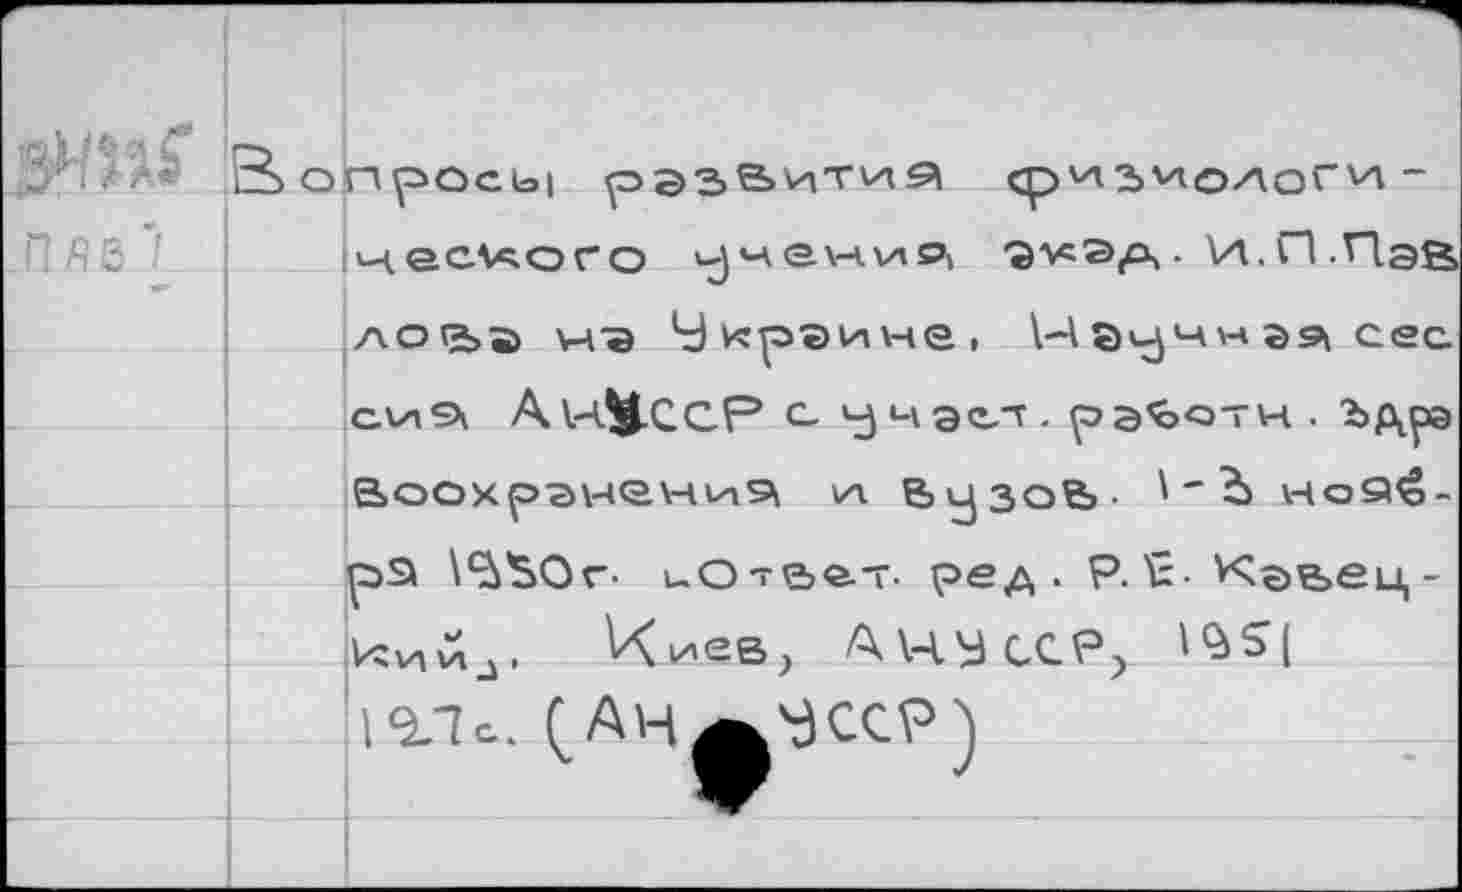 Вопросы развития физиологи-
ческого учения акад. И.П.Пав
лова на Украине, Научная сес
сия АНУССР с участ. работн. здра
воохранения и вузов. 1-3 нояб-
ря 1950г. Ответ. ред. Р.Е. Кавец-
кий, Киев, АНУССР, 1951
197с. (АН УССР)